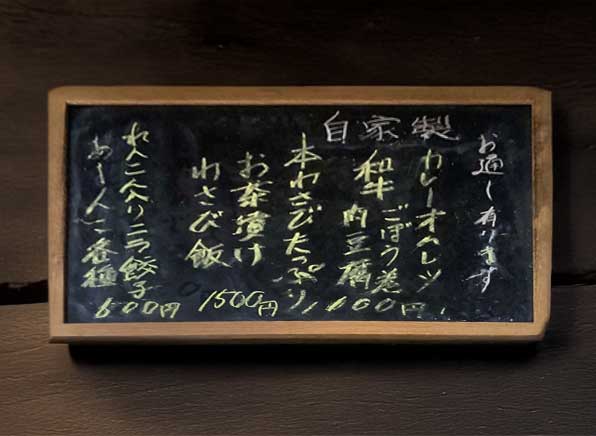 お通し有ります
自家製
カレーオムレツ
ごぼう巻
和牛肉豆腐
本わさびたっぷり
お茶漬け
わさび飯
1500円
れんこん入りニラ餃子
各種
600円